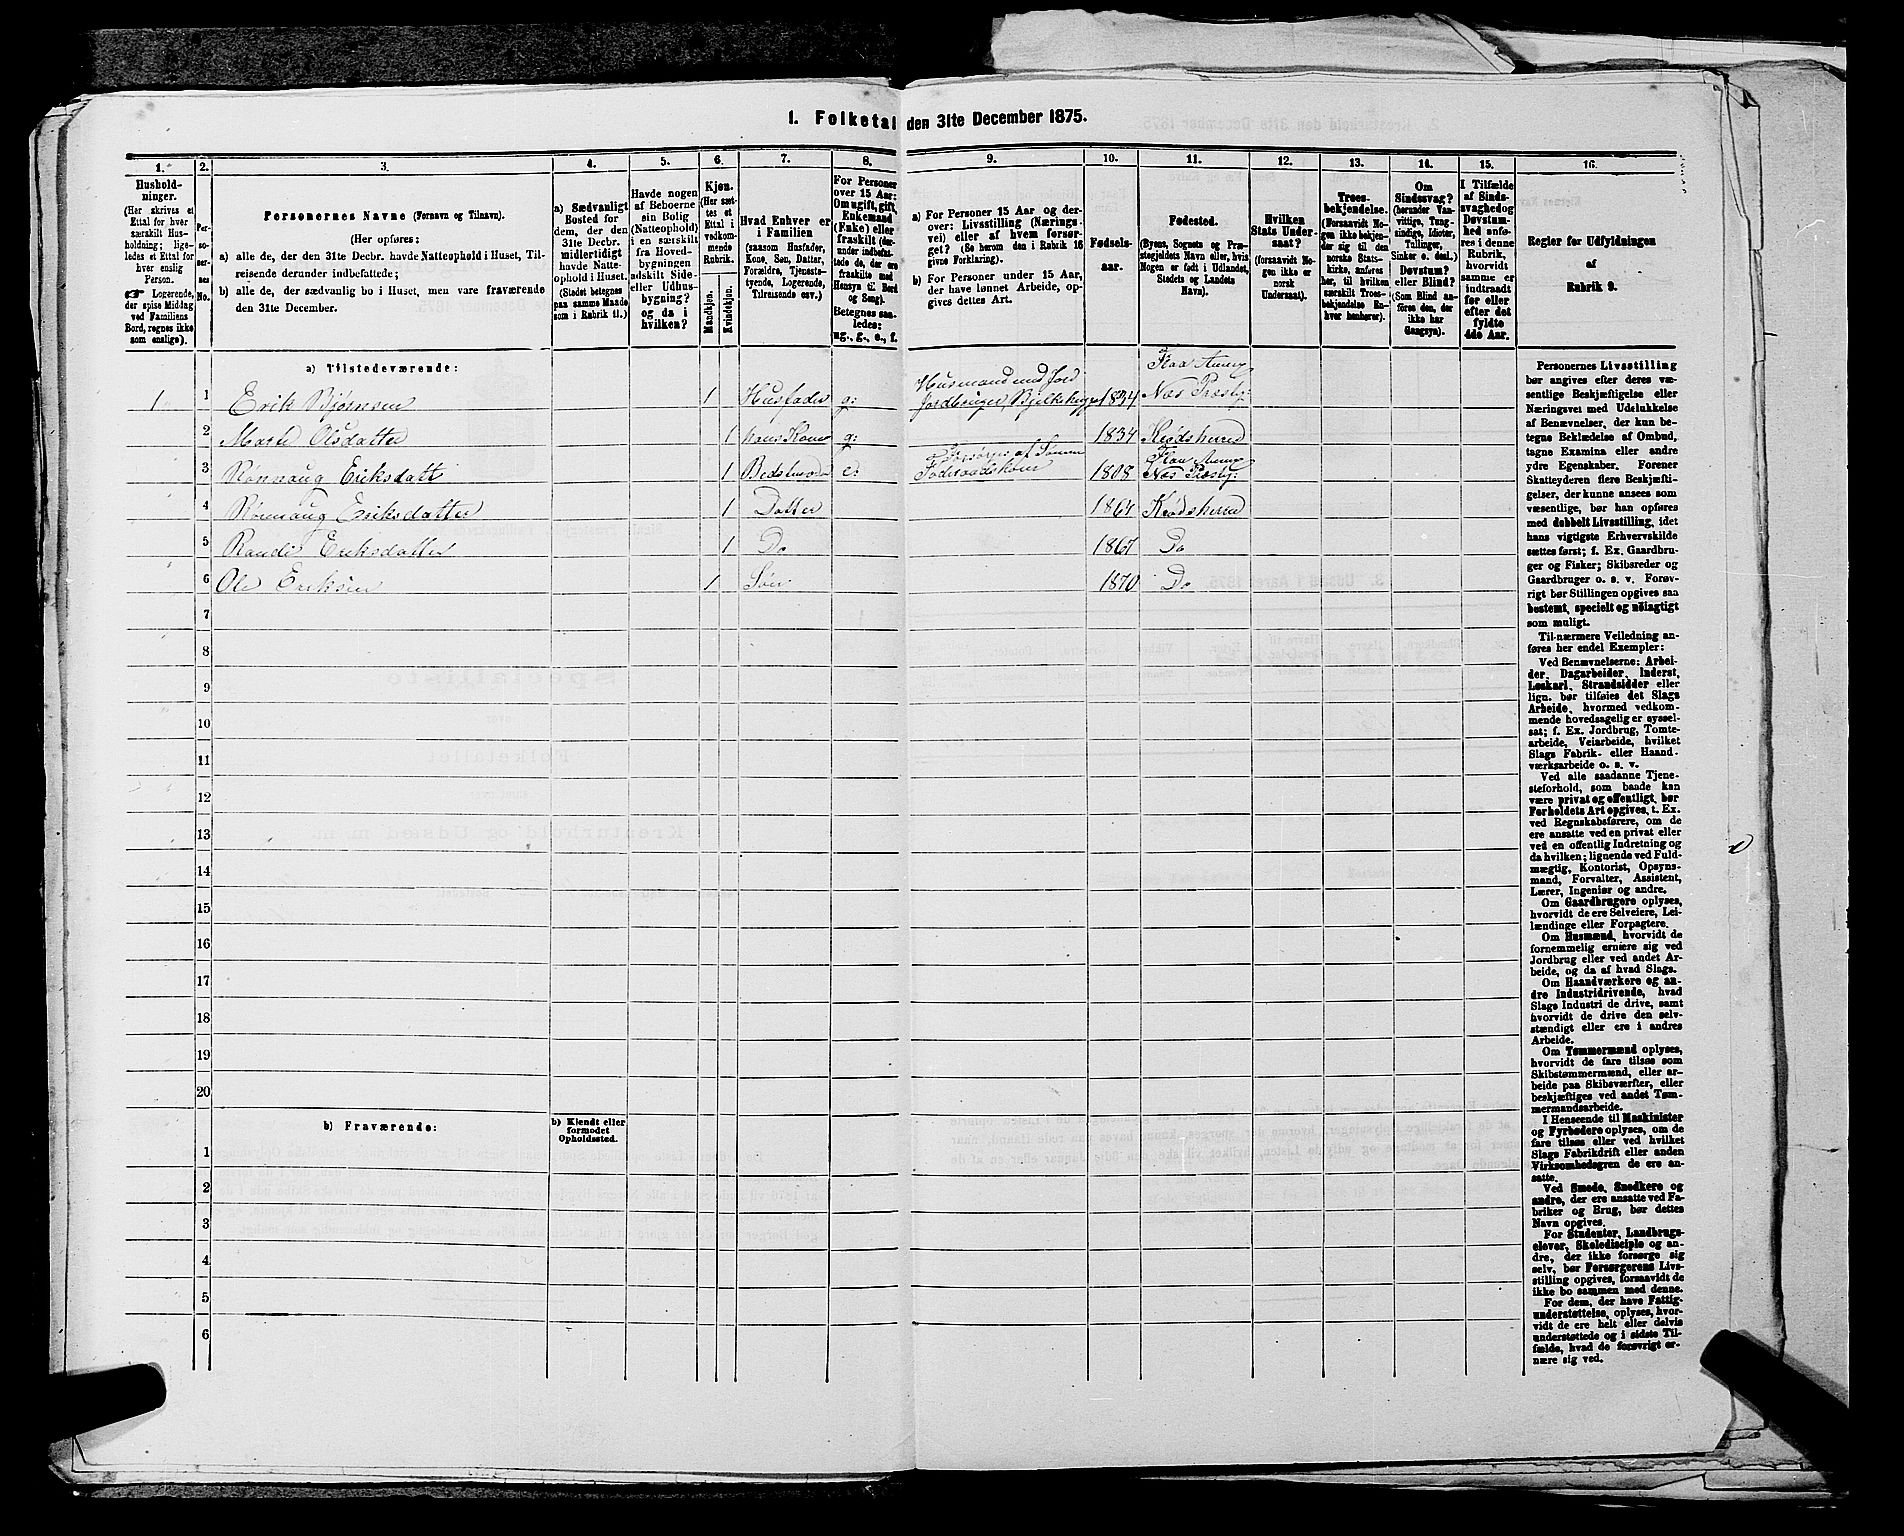 1. Folketal den 31te December 1875.
1. 2. 3. 4. 5. 6. 7. 8. 9. 10. 11. 12. 13. 14. 15. 16.
Hushold-
ninger.
(Her skrives et
Ettal for hver
særskilt Hus-
holdning; lige-
ledes et Ettal for
hver enslig
Person.
☞ Logerende,
der spise Middag
ved Familiens
Bord, regnes ikke
som enslige).
Per-
so-
ner-
nes
No.
Personernes Navne (Fornavn og Tilnavn).
(Her opføres:
a) alle de, der den 31te Decbr. havde Natteophold i Huset, Til-
reisende derunder indbefattede;
b) alle de, der sædvanlig bo i Huset, men vare fraværende
den 31te December.
a) Sædvanligt
Bosted for
dem, der den
31te Decbr.
midlertidigt
havde Natte-
ophold i Huset.
(Stedet betegnes
paa samme Maade
som i Rubrik 11.)
Havde nogen
af Beboerne
sin Bolig
(Natteophold)
i en særskilt
fra Hoved-
bygningen
adskilt Side-
eller Udhus-
bygning?
og da i
hvilken?
Kjøn.
(Her sæt-
tes et
Ettal i
vedkom-
mende
Rubrik.
Mandkjøn.
Kvindekjøn.
Hvad Enhver er
i Familien
(saasom Husfader,
Kone, Søn, Datter,
Forældre, Tjeneste-
tyende, Logerende,
Tilreisende osv.)
For Personer
over 15 Aar:
Om ugift, gift,
Enkemand
(Enke) eller
fraskilt (der-
under indbefat-
tede de, der ere
fraskilte med
Hensyn til Bord
og Seng).
Betegnes saa-
ledes:
ug., g., e., f.
a) For Personer 15 Aar og der-
over: Livsstilling (Nærings-
vei) eller af hvem forsør-
get? (Se herom den i Rubrik 16
givne Forklaring).
b) For Personer under 15 Aar,
der have lønnet Arbeide, op-
gives dettes Art.
Fødsels-
aar.
Fødested.
(Byens, Sognets og Præ-
stegjeldets Navn eller, hvis
Nogen er født i Udlandet,
Stedets og Landets
Navn).
Hvilken
Stats Under-
saat?
(forsaavidt No-
gen ikke er
norsk
Undersaat).
Troes-
bekjendelse.
(Forsaavidt No-
gen ikke bekjen-
der sig til den
norske Stats-
kirke, anføres
her, til hvilken
særskilt Troes-
bekjendelse En-
hver henhører).
Om
Sindssvag?
(herunder Van-
vittige, Tung-
sindige, Idioter,
Tullinger,
Sinker o. desl.)
Døvstum?
eller Blind?
(Som Blind an-
føres den, der
ikke har
Gangsyn).
I Tilfælde
af Sinds-
svaghed og
Døvstum-
hed anfø-
res i denne
Rubrik,
hvorvidt
samme er
indtraadt
før eller
efter det
fyldte
4de Aar.
Regler for Udfyldningen
af
Rubrik 9.
a) Tilstedeværende:
Flaa Annex
Husmand med Jord
1 1 Erik Bjørnsen 1 Husfader g: Jordbruger, 1834 Næs Præstg:
2 Marte Olsdatter 1 hans Kone g: 1834 Krødsherred
Forsørges af Sønnen Flaa Annex
3 Rønnaug Eriksdatt 1 Bedstmoder e: Føderaadskone 1808 Næs Præstg:
4 Rønnaug Eriksdatter 1 Datter 1864 Krødsherred
5 Randi Eriksdatter 1 Do 1867 Do
6 Ole Eriksen 1 Søn 1870 Do
7
8
9
10
11
12
13
14
15
16
17
18
19
20
b) Fraværende:
b) Kjendt eller
formodet
Opholdssted.
1
2
3
4
5
6
Personernes Livsstilling
bør angives efter deres væ-
sentlige Beskjæftigelse eller
Næringsvei med Udelukkelse
af Benævnelser, der kun be-
tegne Beklædelse af Ombud,
tagne Examina eller andre
ydre Egenskaber. Forener
Skatteyderen flere Beskjæfti-
gelser, der kunne ansees som
væsentlige, bør han opføres
med dobbelt Livsstilling, idet
hans vigtigste Erhvervskilde
sættes først; f. Ex. Gaardbru-
ger og Fisker; Skibsreder og
Gaardbruger o. s. v. Forøv-
rigt bør Stillingen opgives saa
bestemt, specielt og nøiagtigt
som muligt.
Til nærmere Veiledning an-
føres her endel Exempler:
Ved Benævnelserne: Arbei-
der, Dagarbeider, Inderst,
Løskarl, Strandsidder eller
lign. bør tilføies det Slags
Arbeide, hvormed vedkom-
mende hovedsagelig er syssel-
sat; f. Ex. Jordbrug, Tomte-
arbeide, Veiarbeide, hvilket
Slags Fabrik- eller Haand-
værksarbeide o. s. v.
Ved alle saadanne Tjene-
steforhold, som baade kan
være privat og offentligt, bør
Forholdets Art opgives, t. Ex.
ved Regnskabsførere, om de
ere ansatte ved en privat eller
ved en offentlig Indretning og
da hvilken; lignende ved Fuld-
mægtig, Kontorist, Opsyns-
mand, Forvalter, Assistent,
Lærer, Ingeniør og andre.
Om Gaardbrugere oplyses,
hvorvidt de ere Selveiere, Lei-
lændinge eller Forpagtere.
Om Husmænd, hvorvidt de
fornemmelig ernære sig ved
Jordbrug eller ved andet Ar-
beide, og da af hvad Slags.
Om Haandværkere og an-
dre Industridrivende, hvad
Slags Industri de drive, samt
hvorvidt de drive den selv-
stændigt eller ere i andres
Arbeide.
Om Tømmermænd oplyses,
hvorvidt de fare tilsøs som
Skibstømmermænd, eller ar-
beide paa Skibsværfter, eller
beskjæftiges ved andet Tøm-
mermandsarbeide.
I Henseende til Maskinister
og Fyrbødere oplyses, om de
fare tilsøs eller ved hvilket
Slags Fabrikdrift eller anden
Virksomhedsgren de ere an-
satte.
Ved Smede, Snedkere og
andre, der ere ansatte ved Fa-
briker og Brug, bør dettes
Navn opgives.
For Studenter, Landbrugs-
elever, Skoledisciple og an-
dre, der ikke forsørge sig
selv, bør Forsørgerens Livs-
stilling opgives, forsaavidt de
ikke bo sammen med denne.
For dem, der have Fattig-
understøttelse, oplyses, hvor-
vidt de ere helt eller delvis
understøttede og i sidste Til-
fælde, hvad de forøvrigt er-
nære sig ved.